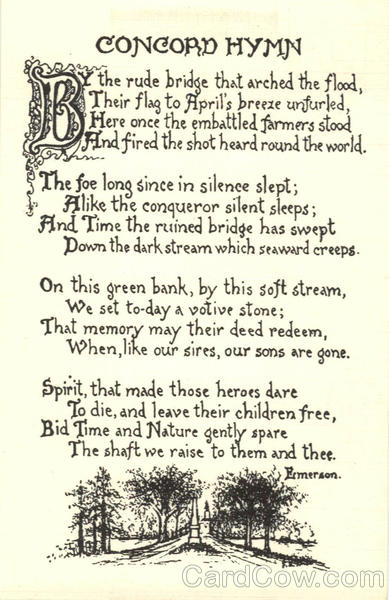 CONCORD HYMN
BY the rude bridge that arched the flood,
Their flag to April's breeze unfurled,
Here once the embattled farmers stood
And fired the shot heard round the world.
The foe long since in silence slept;
Alike the conqueror silent sleeps;
And Time the ruined bridge has swept
Down the dark stream which seaward creeps.
On this green bank, by this soft stream,
We set to-day a votive stone;
That memory may their deed redeem,
When, like our sires, our sons are gone.
Spirit, that made those heroes dare
To die, and leave their children free,
Bid Time and Nature gently spare
The shaft we raise to them and thee.
Emerson.
CardCow.com